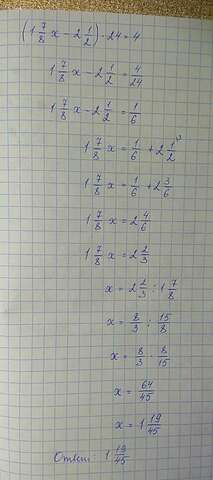 (1 7/8 x - 2 1/2) · 24 = 4
1 7/8 x - 2 1/2 = 4/24
1 7/8 x - 2 1/2 = 1/6
1 7/8 x = 1/6 + 2 1/2 ³
1 7/8 x = 1/6 + 2 3/6
1 7/8 x = 2 4/6
1 7/8 x = 2 2/3
x = 2 2/3 : 1 7/8
x = 8/3 : 15/8
x = 8/3 · 8/15
x = 64/45
x = 1 19/45
Ответ: 1 19/45